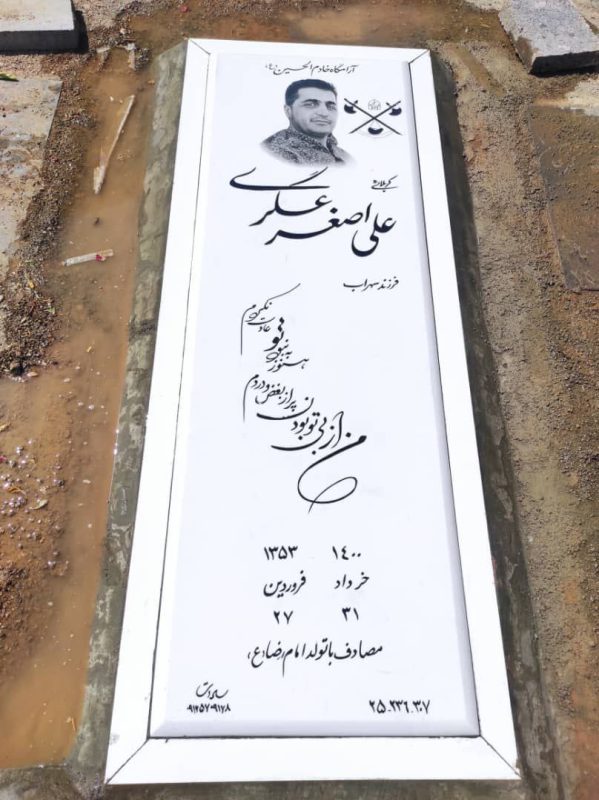 آرامگاه خادم الحسین (ع)
کربلایی
علی اصغر عسگری
فرزند سهراب
هنوز به نبود تو عادت نکردم
پر از بغض و دردم
من از بی تو بودن
۱۴۰۰ ۱۳۵۳
خرداد فروردین
۳۱ ۲۷
مصادف با تولد امام رضا (ع)
۲۵-۲۳۶-۳۰۷